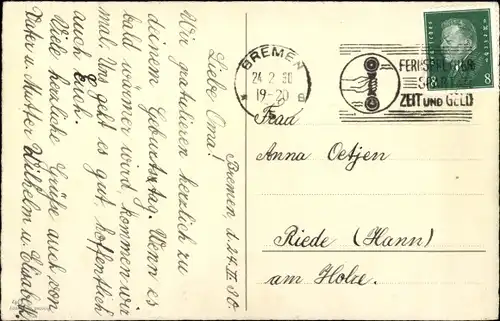 Bremen, d. 24. II 30.
Liebe Oma!
Wir gratulieren herzlich zu
deinem Geburtstag. Wenn es
bald wärmer wird, kommen wir
mal. Uns geht es gut, hoffentlich
auch Euch.
Viele herzliche Grüße auch von
Vater u. Mutter Wilhelm u. Elisabeth.
BREMEN
24 2 30
19-20
* B
FERNSPRECHEN
SPART
ZEIT UND GELD
8 8
Frau
Anna Oetjen
Riede (Hann)
am Holze.